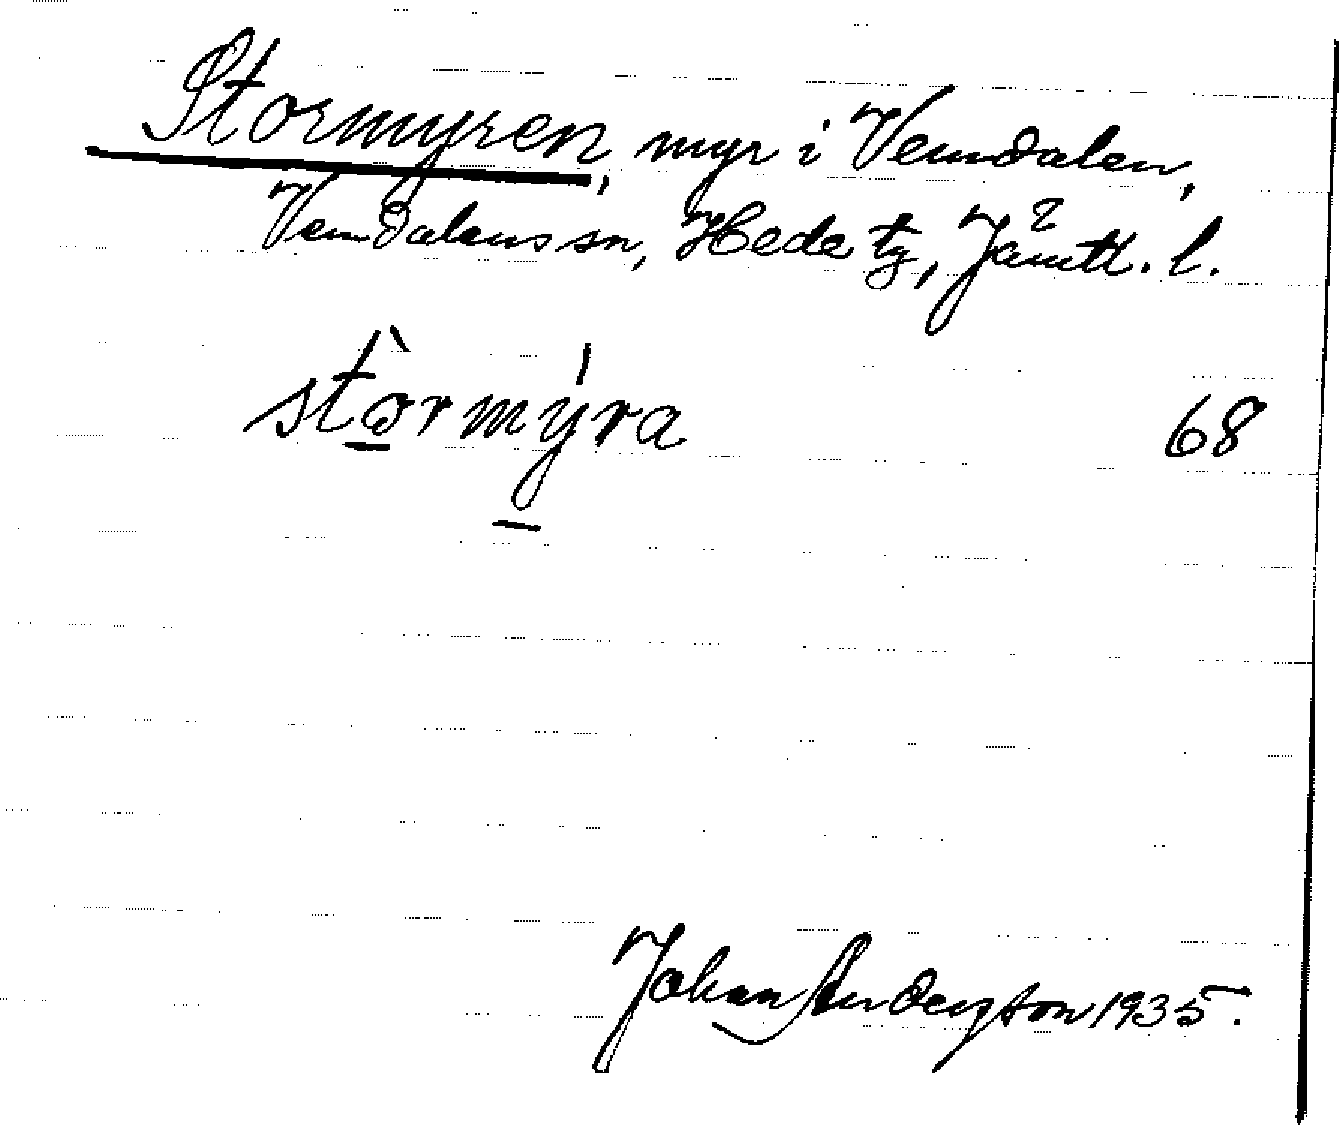 Stormyren, myr i Vemdalen,
Vemdalens sn, Hede tg, Jämtl. l.
stòrmýra 68
Johan Anderzson 1935.